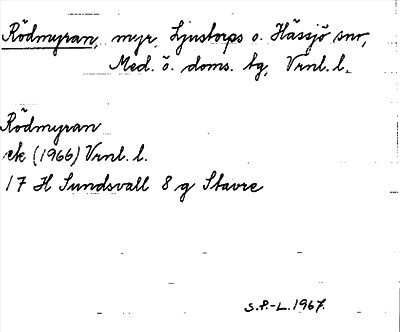 Rödmyran, myr, Ljustorps o. Hässjö snr,
Med. ö. doms. bg, Vrnl. l.
Rödmyran
ek (1966) Vrnl. l.
17 H Sundsvall 8 g Stavre
S.P.-L. 1967.